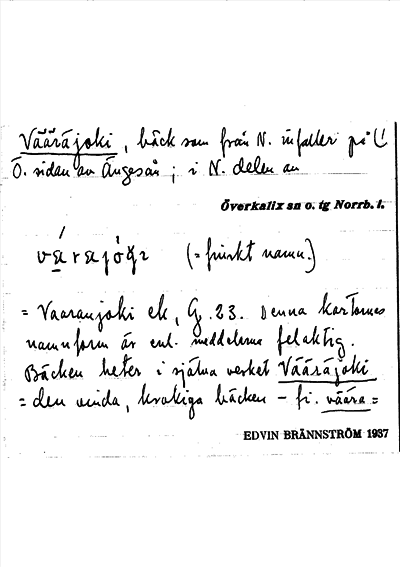 Vääräjoki, bäck som från N. infaller på (!)
Ö. sidan av Ängesån; i N. delen av
Överkalix sn o. tg Norrb. l.
(= finskt namn.)
= Vaaranjoki ek, G. 23. Denna kartornas
namnform är enl. meddelarna felaktig.
Bäcken heter i själva verket Vääräjoki
= den vinda, krokiga bäcken - fi. väärä =
EDVIN BRÄNNSTRÖM 1937